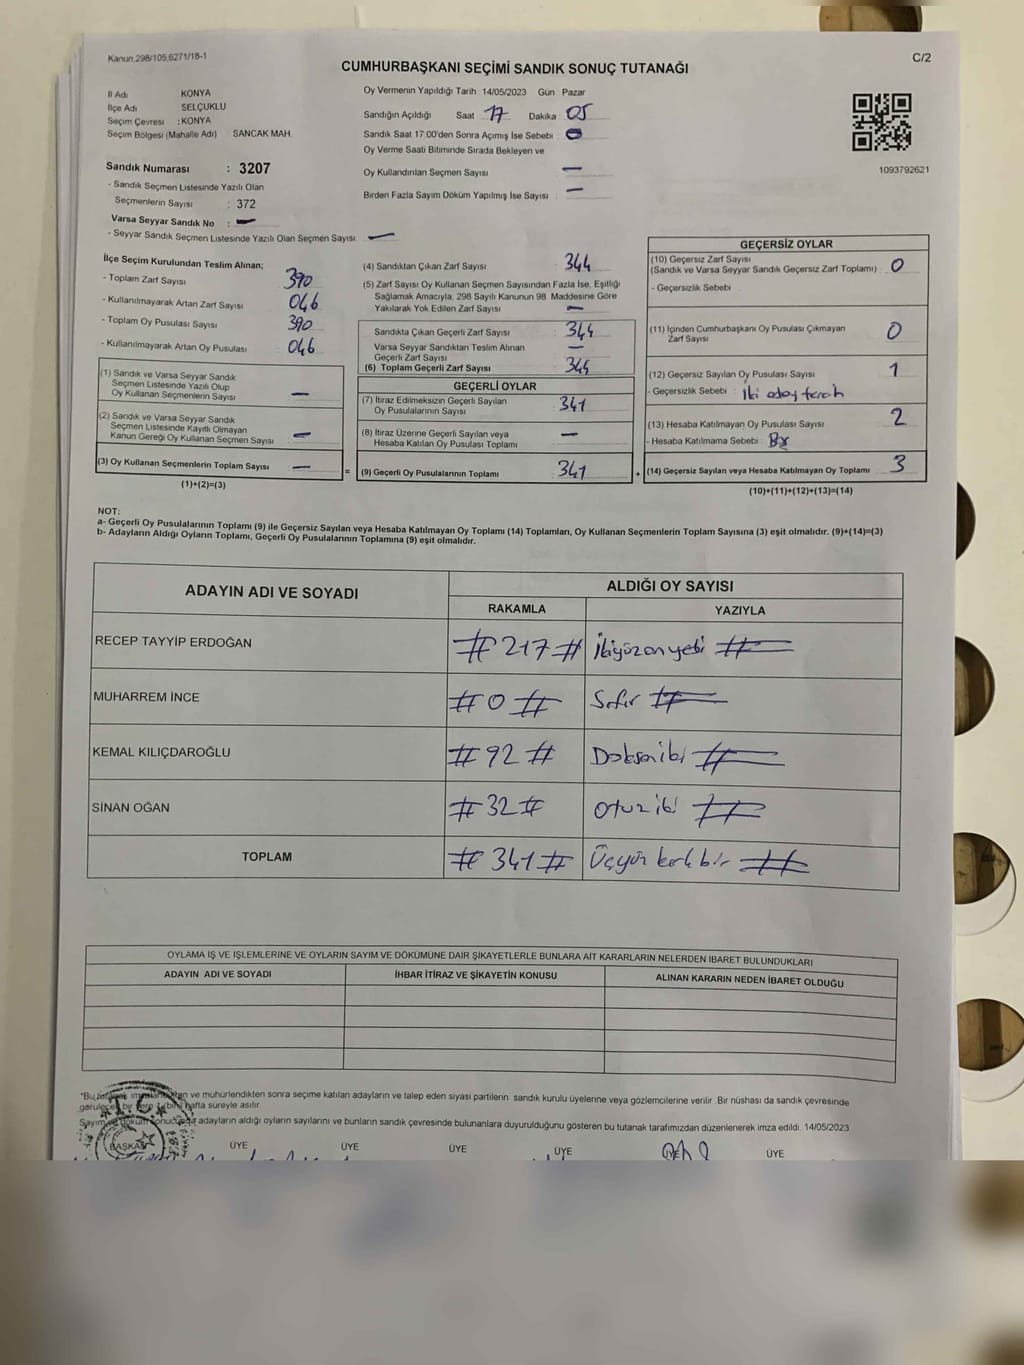 Kanun.298/105;6271/18-1
C/2
CUMHURBAŞKANI SEÇİMİ SANDIK SONUÇ TUTANAĞI
İl Adı KONYA
İlçe Adı SELÇUKLU
Seçim Çevresi :KONYA
Seçim Bölgesi (Mahalle Adı) SANCAK MAH.
Oy Vermenin Yapıldığı Tarih :14/05/2023 Gün Pazar
Sandığın Açıldığı Saat 17 Dakika 05
Sandık Saat 17:00'den Sonra Açımış İse Sebebi :
Oy Verme Saati Bitiminde Sırada Bekleyen ve
Oy Kullandırılan Seçmen Sayısı : —
Birden Fazla Sayım Döküm Yapılmış İse Sayısı : —
1093792621
Sandık Numarası : 3207
- Sandık Seçmen Listesinde Yazılı Olan
Seçmenlerin Sayısı : 372
Varsa Seyyar Sandık No : —
- Seyyar Sandık Seçmen Listesinde Yazılı Olan Seçmen Sayısı: —
İlçe Seçim Kurulundan Teslim Alınan;
- Toplam Zarf Sayısı 390
- Kullanılmayarak Artan Zarf Sayısı 046
- Toplam Oy Pusulası Sayısı 390
- Kullanılmayarak Artan Oy Pusulası 046
(1) Sandık ve Varsa Seyyar Sandık
Seçmen Listesinde Yazılı Olup
Oy Kullanan Seçmenlerin Sayısı —
(2) Sandık ve Varsa Seyyar Sandık
Seçmen Listesinde Kayıtlı Olmayan
Kanun Gereği Oy Kullanan Seçmen Sayısı —
(3) Oy Kullanan Seçmenlerin Toplam Sayısı — =
(1)+(2)=(3)
(4) Sandıktan Çıkan Zarf Sayısı 344
(5) Zarf Sayısı Oy Kullanan Seçmen Sayısından Fazla İse, Eşitliği
Sağlamak Amacıyla, 298 Sayılı Kanunun 98. Maddesine Göre
Yakılarak Yok Edilen Zarf Sayısı —
Sandıkta Çıkan Geçerli Zarf Sayısı 344
Varsa Seyyar Sandıktan Teslim Alınan
Geçerli Zarf Sayısı —
(6) Toplam Geçerli Zarf Sayısı 344
GEÇERLİ OYLAR
(7) İtiraz Edilmeksizin Geçerli Sayılan
Oy Pusulalarının Sayısı 341
(8) İtiraz Üzerine Geçerli Sayılan veya
Hesaba Katılan Oy Pusulası Toplamı —
(9) Geçerli Oy Pusulalarının Toplamı 341 +
GEÇERSİZ OYLAR
(10) Geçersiz Zarf Sayısı
(Sandık ve Varsa Seyyar Sandık Geçersiz Zarf Toplamı) 0
- Geçersizlik Sebebi :
(11) İçinden Cumhurbaşkanı Oy Pusulası Çıkmayan
Zarf Sayısı 0
(12) Geçersiz Sayılan Oy Pusulası Sayısı 1
- Geçersizlik Sebebi : İki aday tercih
(13) Hesaba Katılmayan Oy Pusulası Sayısı 2
- Hesaba Katılmama Sebebi :
(14) Geçersiz Sayılan veya Hesaba Katılmayan Oy Toplamı 3
(10)+(11)+(12)+(13)=(14)
NOT:
a- Geçerli Oy Pusulalarının Toplamı (9) ile Geçersiz Sayılan veya Hesaba Katılmayan Oy Toplamı (14) Toplamları, Oy Kullanan Seçmenlerin Toplam Sayısına (3) eşit olmalıdır. (9)+(14)=(3)
b- Adayların Aldığı Oyların Toplamı, Geçerli Oy Pusulalarının Toplamına (9) eşit olmalıdır.
ADAYIN ADI VE SOYADI ALDIĞI OY SAYISI
RAKAMLA YAZIYLA
RECEP TAYYİP ERDOĞAN #217# İkiyüzonyedi #
MUHARREM İNCE #0# Sıfır #
KEMAL KILIÇDAROĞLU #92# Doksaniki #
SİNAN OĞAN #32# Otuziki #
TOPLAM #341# Üçyüz kırk bir #
OYLAMA İŞ VE İŞLEMLERİNE VE OYLARIN SAYIM VE DÖKÜMÜNE DAİR ŞİKAYETLERLE BUNLARA AİT KARARLARIN NELERDEN İBARET BULUNDUKLARI
ADAYIN ADI VE SOYADI İHBAR İTİRAZ VE ŞİKAYETİN KONUSU ALINAN KARARIN NEDEN İBARET OLDUĞU
ve mühürlendikten sonra seçime katılan adayların ve talep eden siyasi partilerin sandık kurulu üyelerine veya gözlemcilerine verilir. Bir nüshası da sandık çevresinde
görülecek bir yere bir hafta süreyle asılır.
Sayım ve döküm sonucunda adayların aldığı oyların sayılarını ve bunların sandık çevresinde bulunanlara duyurulduğunu gösteren bu tutanak tarafımızdan düzenlenerek imza edildi. 14/05/2023
T.C.
BAŞKAN ÜYE ÜYE ÜYE ÜYE ÜYE ÜYE